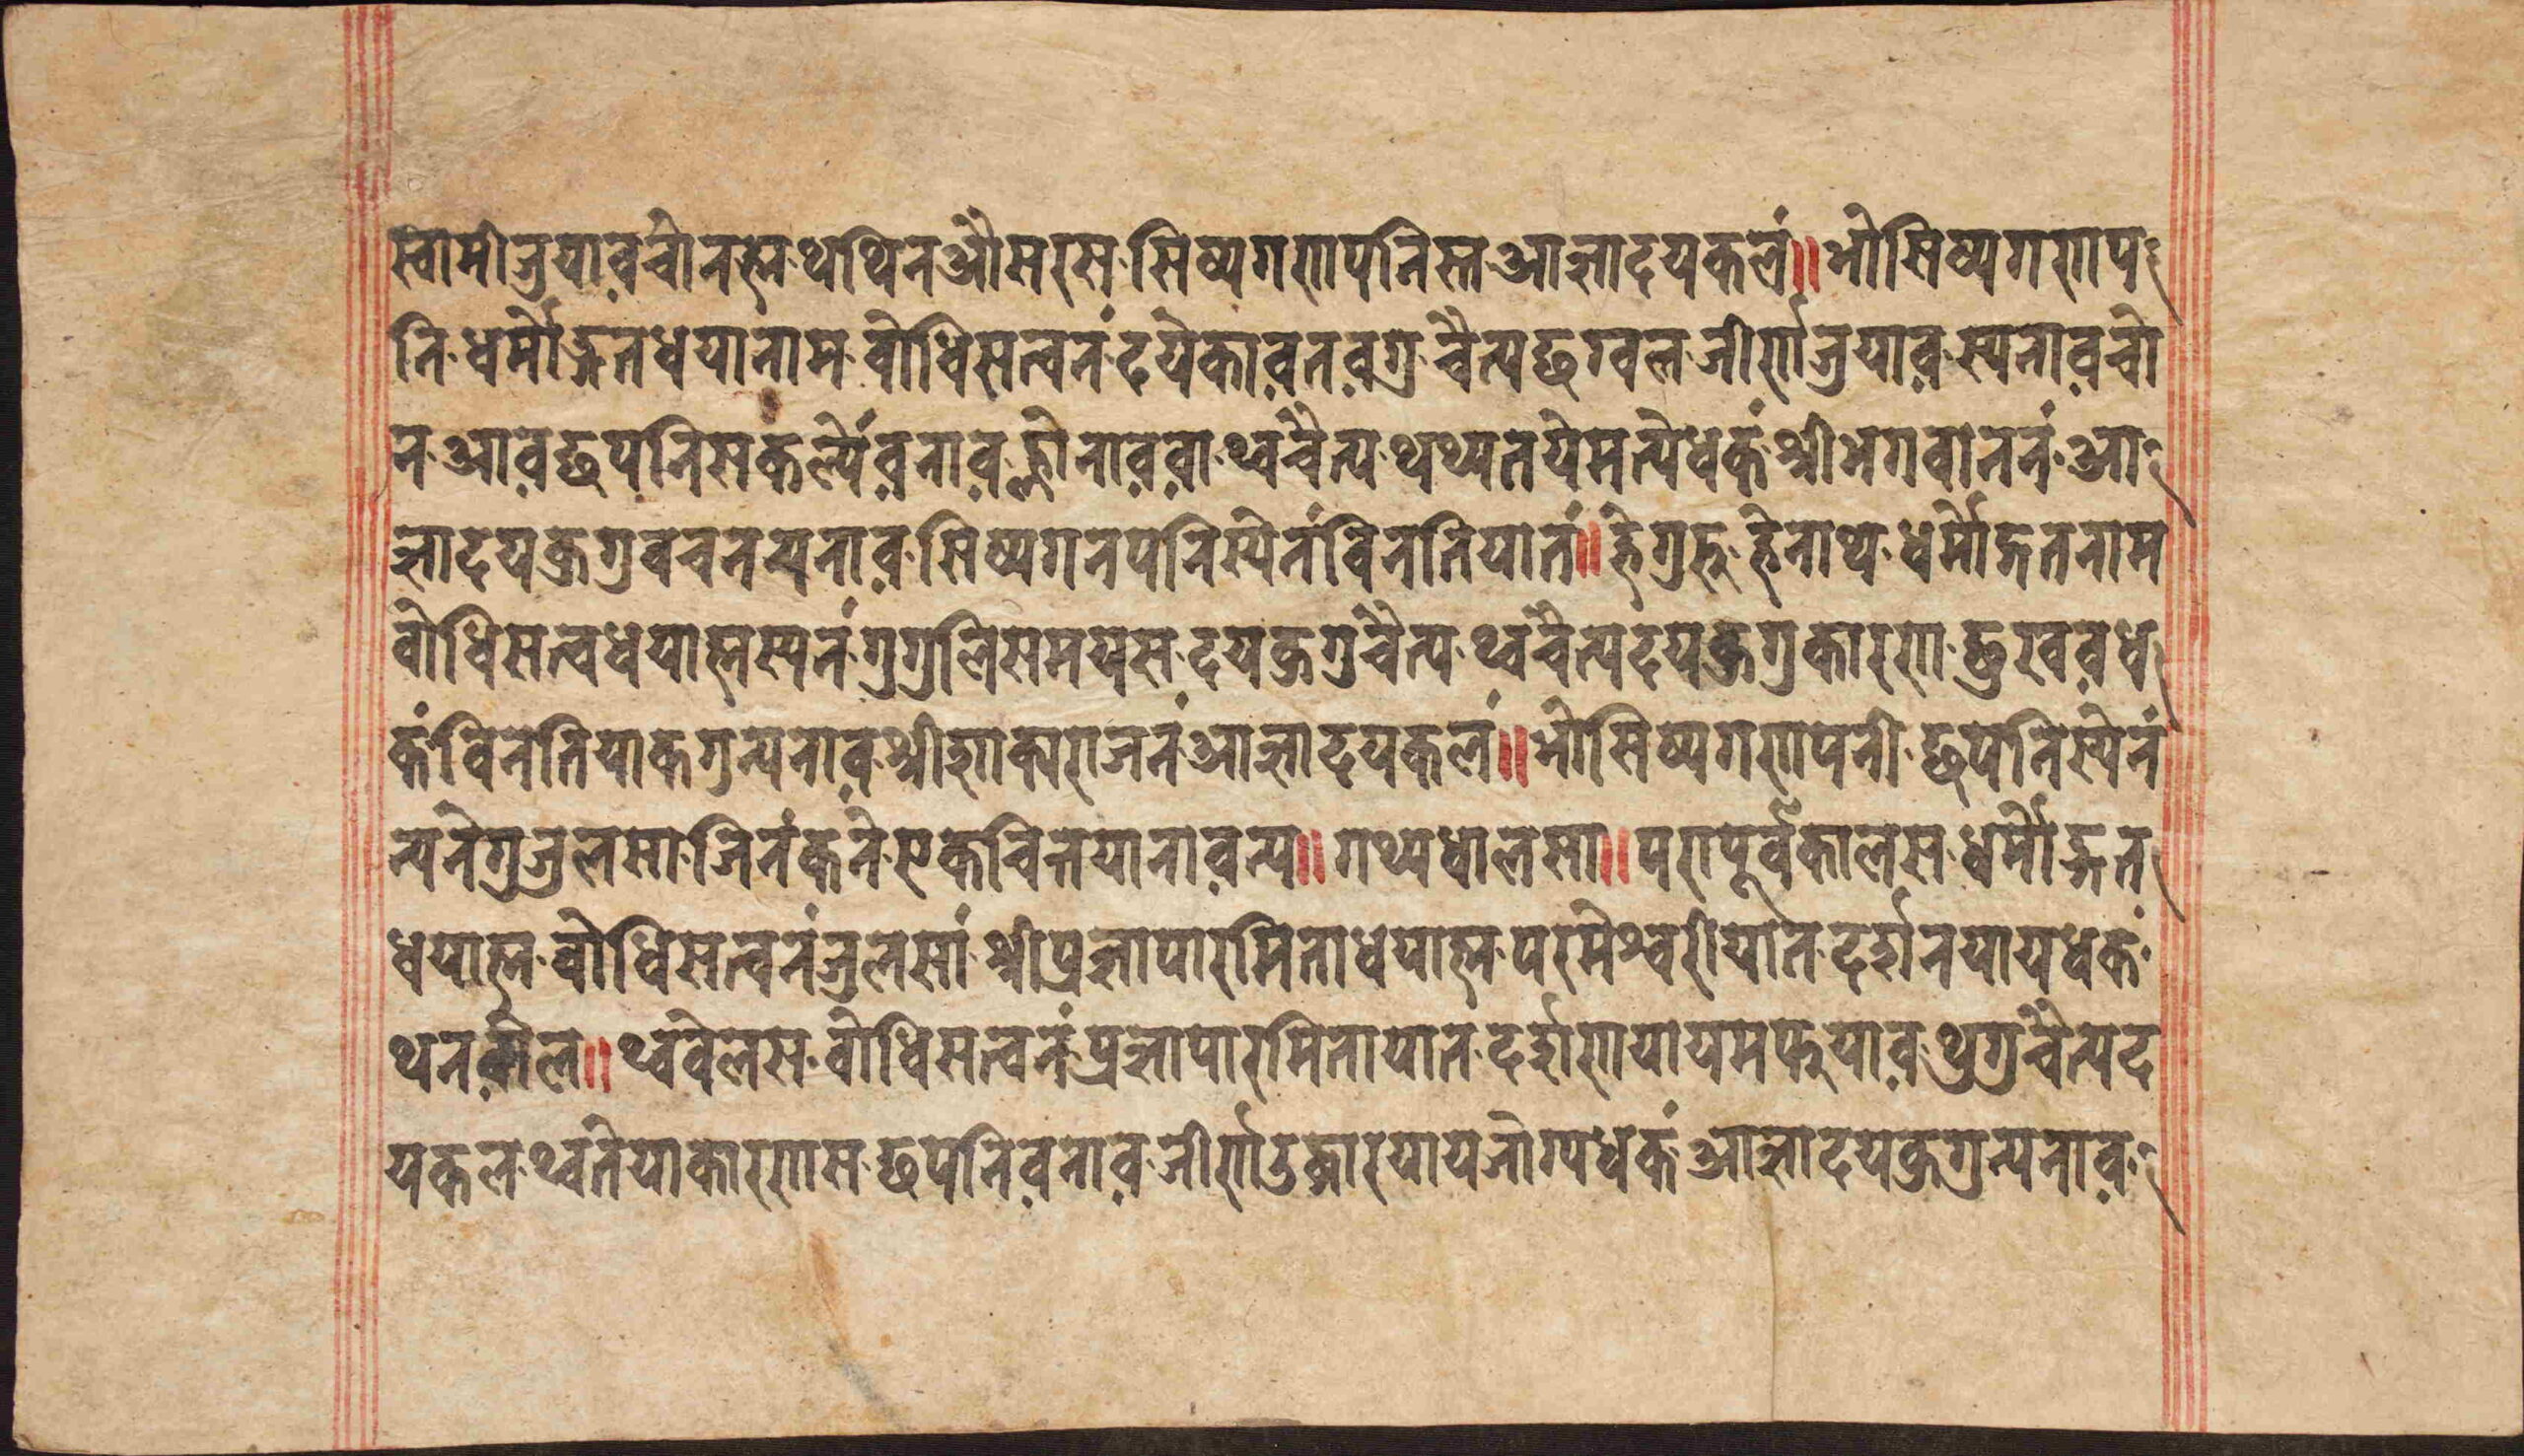 स्वामीजुयाव़चोनह्म थथिनऔसरस सिष्यगणपनिस्त आज्ञादयकलं॥ भोसिष्यगणप
नि धर्मोङ्गतधयानाम बोधिसत्वनं दयेकाव़तव़गु चैत्यछग्वल जीर्णजुयाव़ स्यनाव़चो
न आव़छपनिसकल्यें व़नाव़ ल्होनाव़व़ा थ्वचैत्य थथ्यतयेमत्येधकं श्रीभगवाननं आ
ज्ञादयकूगुवचनन्यनाव़ सिष्यगनपनिस्येनंविनतियातं॥ हेगुरु हेनाथ धर्मोङ्गतनाम
बोधिसत्वधयाह्मस्यनं गुगुलिसमयस दयकूगुचैत्य थ्वचैत्यदयकूगुकारण छुखव़धे
कंविनतियाकगुन्यनाव़ श्रीशाक्यराजनं आज्ञादयकलं॥ भोसिष्यगणपनी छपनिस्येनं
न्यनेगुजुलसा जिनंकने एकचित्तयानाव़न्य॥ गथ्यधालसा॥ परापूर्वकालस धर्मोङ्गत
धयाह्म बोधिसत्वनंजुलसां श्रीप्रज्ञापारमिताधयाह्म परमेश्वरीयात दर्शनयायधकं
थनर्काल॥ थ्ववेलस बोधिसत्वनं प्रज्ञापारमितायात दर्शणयायमफुयाव़ थुगुचैत्यद
यकल थ्वतेयाकारणस छपनिव़नाव़ जीर्णाउद्धारयायजोग्यधकं आज्ञादयकूगुन्यनाव़